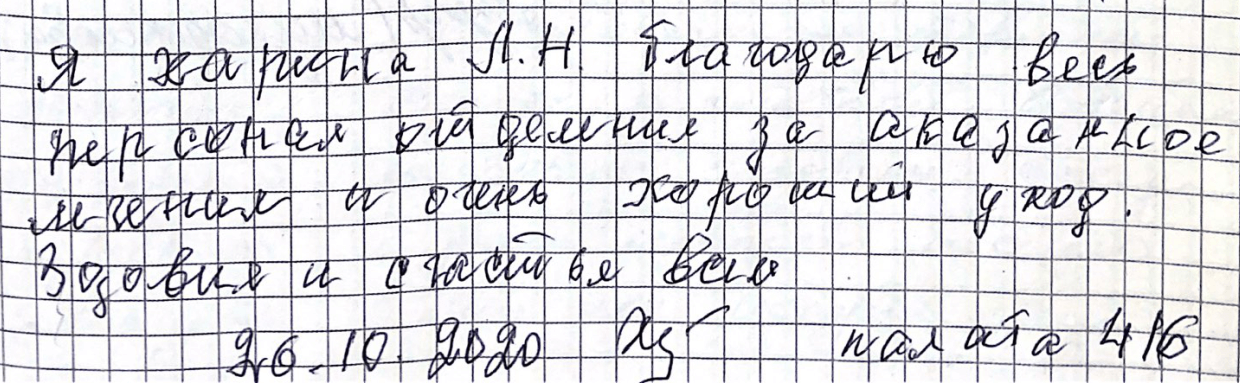 Я харина Л.Н. благодарю весь
персонал отделения за аказанное
лечения и очень хороший уход.
Здовия и счастья вам
26.10.2020 палата 416